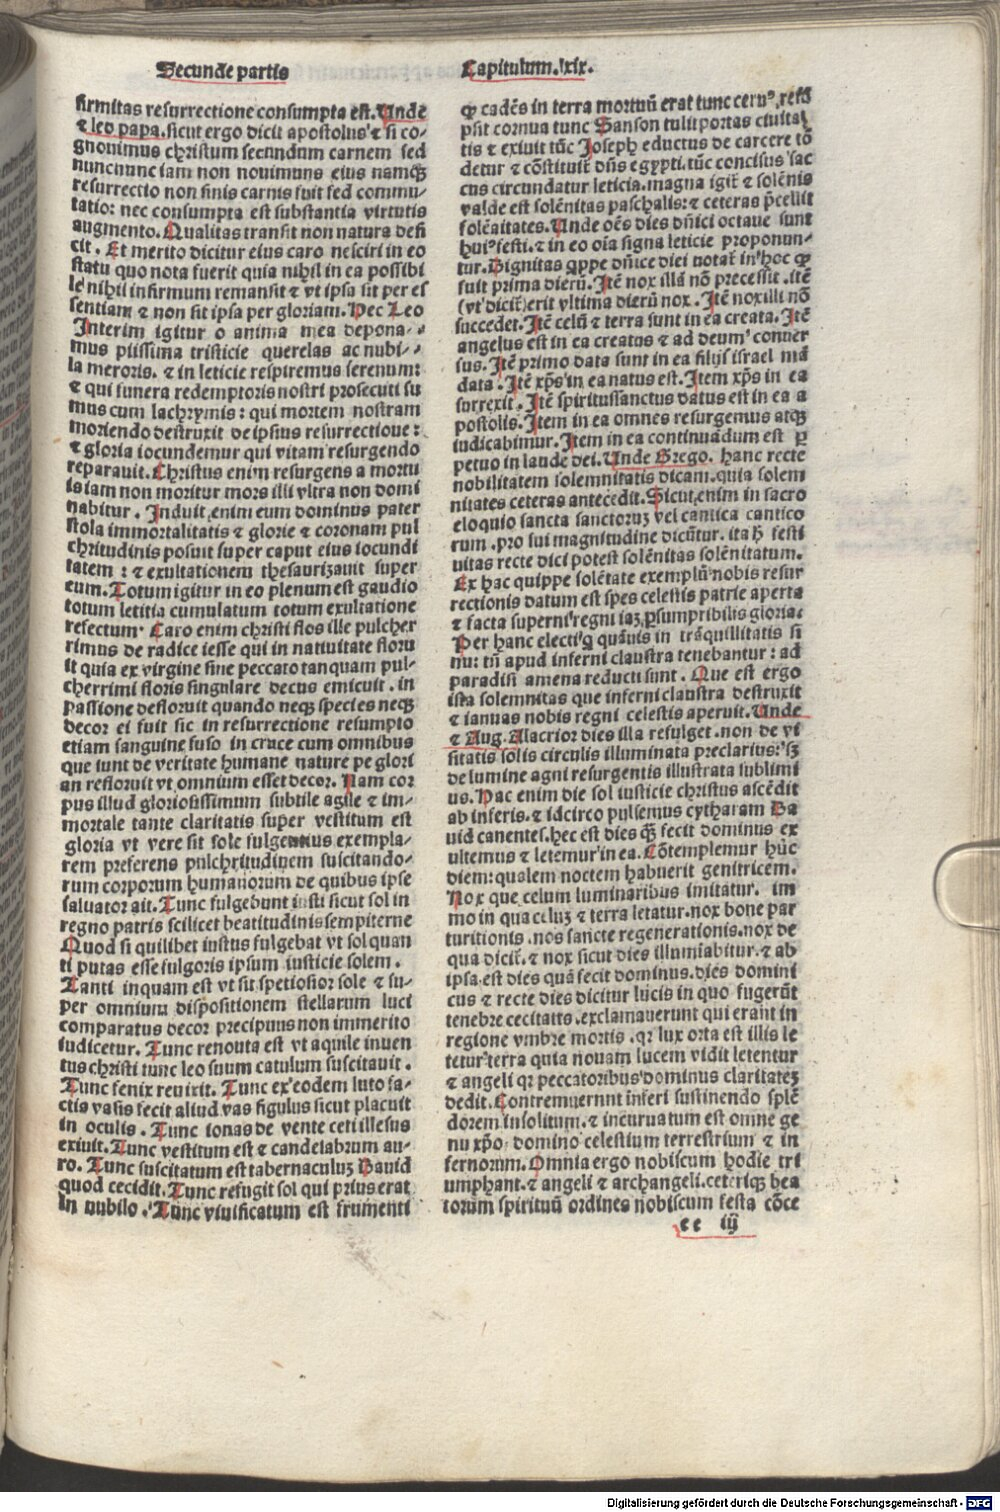 Secunde partis
Capitulum .lxix.
firmitas resurrectione consumpta est. Unde
⁊ leo papa. sicut ergo dicit apostolus ⁊ si co-
gnouimus christum secundum carnem sed
nuncnunc iam non nouimuns eius namqꝫ
resurrectio non finis carnis fuit sed commu-
tatio: nec consumpta est substantia virtutis
augmento. Qualitas transit non natura defi
cit. Et merito dicitur eius caro nesciri in eo
statu quo nota fuerit quia nihil in ea possibi
le nihil infirmum remansit ⁊ vt ipsa sit per es
sentiam ⁊ non sit ipsa per gloriam. Hec Leo
Interim igitur o anima mea depona-
mus piissima tristicie querelas ac nubi-
la meroris. ⁊ in leticie respiremus serenum:
⁊ qui funera redemptoris nostri prosecuti su
mus cum lachrymis: qui mortem nostram
moriendo destruxit de ipsius resurrectioue:
⁊ gloria iocundemur qui vitam resurgendo
reparauit. Christus enim resurgens a mortu
is iam non moritur mors illi vltra non domi
nabitur. Induit enim eum dominus pater
stola immortalitatis ⁊ glorie ⁊ coronam pul
chritudinis posuit super caput eius iocundi
tatem: ⁊ exultationem thesaurizauit super
eum. Totum igitur in eo plenum est gaudio
totum letitia cumulatum totum exultatione
refectum. Caro enim christi flos ille pulcher
rimus de radice iesse qui in natiuitate floru
it quia ex virgine sine peccato tanquam pul-
cherrimi floris singulare decus emicuit. in
passione defloruit quando neqꝫ species neqꝫ
decor ei fuit sic in resurrectione resumpto
etiam sanguine fuso in cruce cum omnibus
que sunt de veritate humane nature pe glori
an refloruit vt omnium esset decor. Nam cor
pus illud gloriosissimum subtile agile ⁊ im-
mortale tante claritatis super vestitum est
gloria vt vere sit sole fulgentius exempla-
rem preferens pulchritudinem suscitando-
rum corporum humanorum de quibus ipse
saluator ait. Tunc fulgebunt iusti sicut sol in
regno patris scilicet beatitudinis sempiterne
Quod si quilibet iustus fulgebat vt sol quan
ti putas esse fulgoris ipsum iusticie solem.
Tanti inquam est vt sit spetiosior sole ⁊ su-
per omnium dispositionem stellarum luci
comparatus decor precipuus non immerito
iudicetur. Tunc renouta est vt aquile iuuen
tus christi tunc leo suum catulum suscitauit.
Tunc fenix reuixit. Tunc ex eodem luto fa-
ctis vasis fecit aliud vas figulus sicut placuit
in oculis. Tunc ionas de vente ceti illesus
exiuit. Tunc vestitum est ⁊ candelabrum au-
ro. Tunc suscitatum est tabernaculuꝫ Dauid
quod cecidit. Tunc refugit sol qui prius erat
in nubilo. Tunc viuificatum est frumenti
qꝫ cadēs in terra mortuū erat tunc ceruꝰ, resū
psit cornua tunc Sanson tulit portas ciuita
tis ⁊ exiuit tūc Joseph eductus de carcere tō
detur ⁊ cōstituit᷑ dn̄s egypti. tūc concisus sac
cus circundatur leticia. magna igit᷑ ⁊ solēnis
valde est solēnitas paschalis: ⁊ ceteras p̄cellit
solēnitates. Unde oēs dies dn̄ici octaue sunt
huiꝰ festi. ⁊ in eo oīa signa leticie proponun-
tur. Dignitas qꝓppe dn̄ice diei notat᷑ in hoc qꝫ
fuit prima dierū. Itē nox illā nō precessit. itē
(vt dicit᷑) erit vltima dierū nox. Itē nox illi nō
succedet. Itē celū ⁊ terra sunt in ea creata. Itē
angelus est in ea creatus ⁊ ad deum conuer
sus. Itē primo data sunt in ea filijs israel mā
data. Itē xp̄s in ea natus est. Item xp̄s in ea
surrexit. Itē spiritussanctus datus est in ea a
postolis. Item in ea omnes resurgemus atqꝫ
iudicabimur. Item in ea continuādum est ꝑ
petuo in laude dei. Unde Grego. hanc recte
nobilitatem solemnitatis dicam. quia solem
nitates ceteras antecedit. Sicut enim in sacro
eloquio sancta sanctoruꝫ vel cantica cantico
rum. pro sui magnitudine dicūtur. ita h̄ festi
uitas recte dici potest solēnitas solēnitatum.
Ex hac quippe solētate exemplū nobis resur
rectionis datum est spes celestis patrie aperta
⁊ facta superni regni iaꝫ p̄sumpribilis gloria:
Per hanc electi qꝫ quāuis in trāquillitatis si
nu: tn̄ apud inferni claustra tenebantur: ad
paradisi amena reducti sunt. Que est ergo
ista solemnitas que inferni claustra destruxit
⁊ ianuas nobis regni celestis aperuit. Unde
⁊ Aug. Alacrior dies illa refulget. non de vi
sitatis solis circulis illuminata preclarius: sꝫ
de lumine agni resurgentis illustrata sublimi
us. Hac enim die sol iusticie christus ascēdit
ab inferis. ⁊ idcirco pulsemus cytharam Da
uid canentes. hec est dies quā fecit dominus ex
ultemus ⁊ letemur in ea. Cōtemplemur hūc
diem: qualem noctem habuerit genitricem.
Nox que celum luminaribus imitatur. im
mo in qua celuꝫ ⁊ terra letatur. nox bone par
turitionis. nos sancte regenerationis. nox de
qua dicit᷑. ⁊ nox sicut dies illumiabitur. ⁊ ab
ipsa est dies quā fecit dominus. dies domini
cus ⁊ recte dies dicitur lucis in quo fugerūt
tenebre cecitatis. exclamauerunt qui erant in
regione vmbre mortis. qꝛ lux orta est illis le
tetur terra quia nouam lucem vidit letentur
⁊ angeli qꝛ peccatoribus dominus claritateꝫ
dedit. Contremuernnt inferi sustinendo splē
dorem insolitum. ⁊ incuruatum est omne ge
nu xp̄o domino celestium terrestrium ⁊ in
fernorum. Omnia ergo nobiscum hodie tri
umphant. ⁊ angeli ⁊ archangeli. ceteriqꝫ bea
torum spirituū ordines nobiscum festa cōce
ee iij
Digitalisierung gefördert durch die Deutsche Forschungsgemeinschaft - DFG